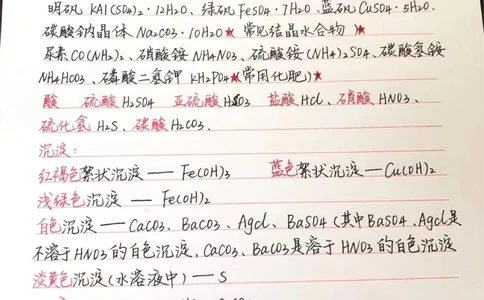 明矾 KAl(SO4)2·12H2O、绿矾 FeSO4·7H2O、蓝矾 CuSO4·5H2O.
碳酸钠晶体 Na2CO3·10H2O★(常见结晶水合物)★
尿素 CO(NH2)2、硝酸铵 NH4NO3、硫酸铵 (NH4)2SO4、碳酸氢铵
NH4HCO3、磷酸二氢钾 KH2PO4★(常用化肥)★
酸 硫酸 H2SO4 亚硫酸 H2SO3 盐酸 HCl、硝酸 HNO3、
硫化氢 H2S、碳酸 H2CO3.
沉淀:
红褐色絮状沉淀 — Fe(OH)3 蓝色絮状沉淀 — Cu(OH)2
浅绿色沉淀 — Fe(OH)2
白色沉淀 — CaCO3、BaCO3、AgCl、BaSO4 (其中BaSO4、AgCl是
不溶于HNO3的白色沉淀、CaCO3、BaCO3是溶于HNO3的白色沉淀
淡黄色沉淀(水溶液中) — S